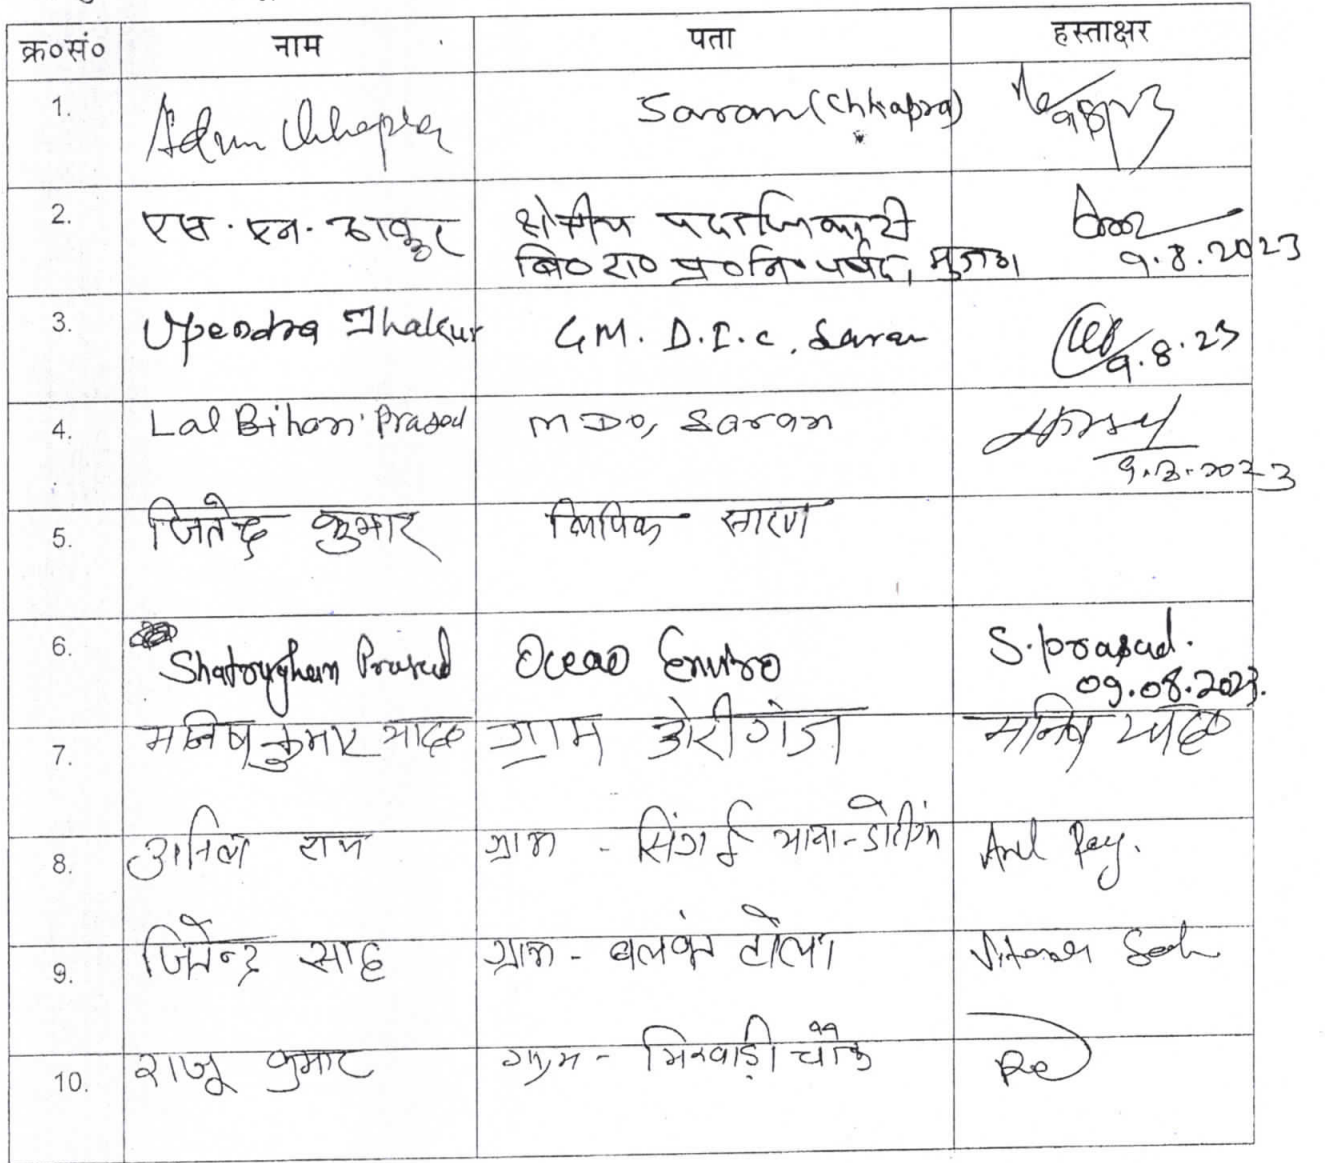 क्र०सं० नाम पता हस्ताक्षर
1. Adm Chhapra Saran (Chhapra)
2. एस. एन. ठाकुर क्षेत्रीय पदाधिकारी
बि० रा० प्र० नि० पर्षद, मुजफ० 9.8.2023
3. Upendra Thakur G.M. D.I.C. Saran 9.8.23
4. Lal Bihari Prasad MDO, Saran
9.8.2023
5. जितेंद्र कुमार लिपिक सारण
6. Shatrughan Prasad Ocean Enviro S. prasad.
09.08.2023.
7. मनिष कुमार यादव ग्राम डोरीगंज मनिष यादव
8. अनिल राय ग्राम - सिंगई Anil Ray.
9. जितेन्द्र साह ग्राम - बलवंत टोला Jitendra Sah
10. राजू कुमार ग्राम - चौक